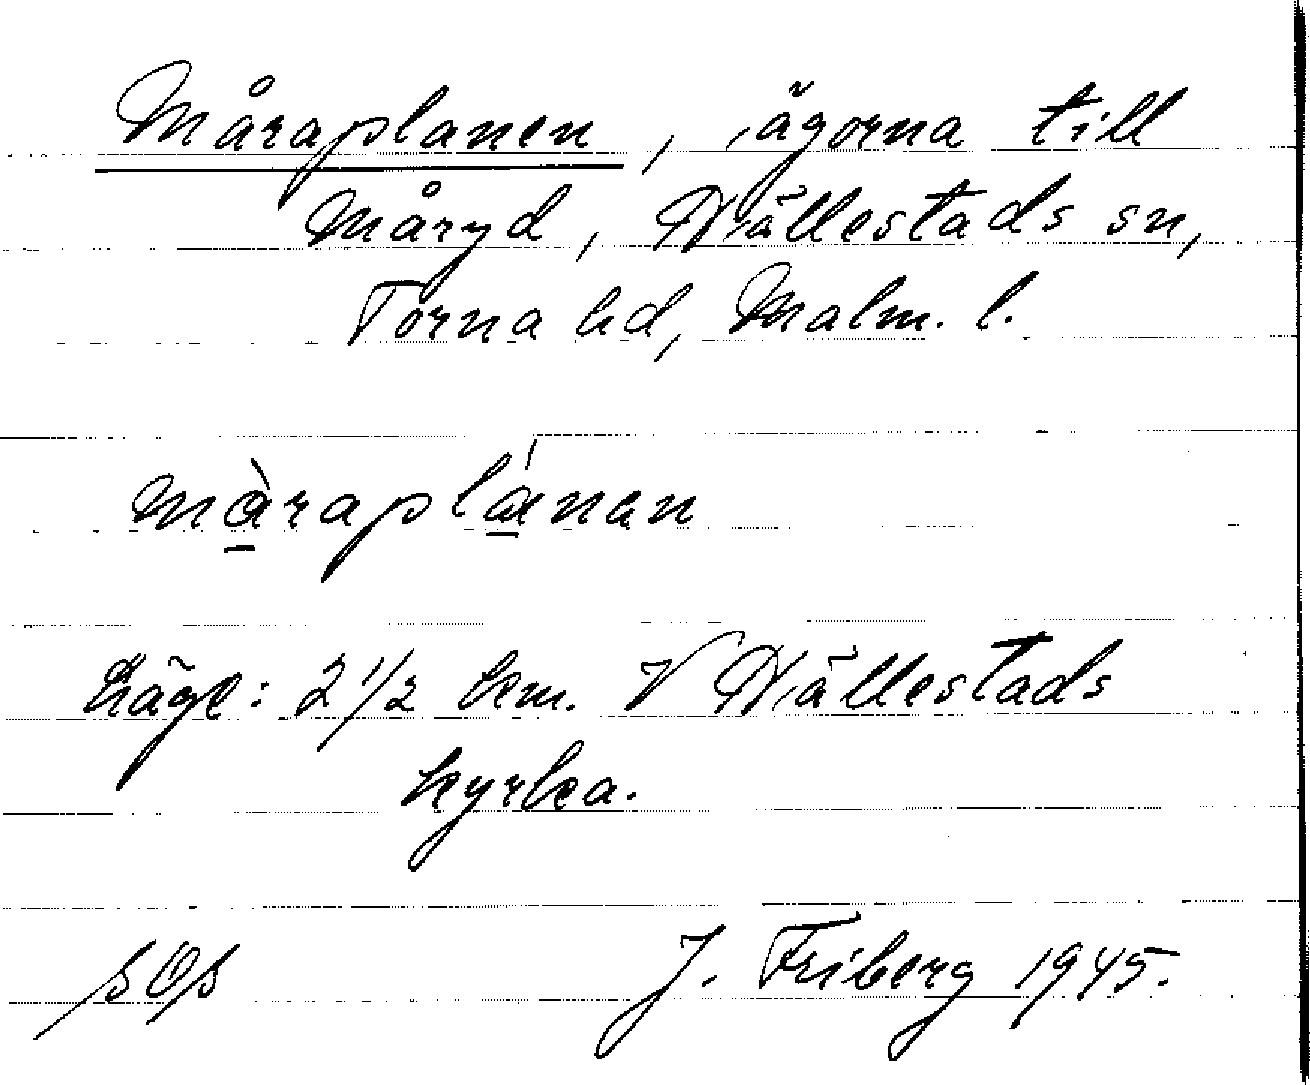 Måraplanen, ägorna till
Måryd, Hällestads sn,
Torna hd, Malm. l.
màraplánan
Läge: 2 1/2 km. V Hällestads
kyrka.
J. Friberg 1945.